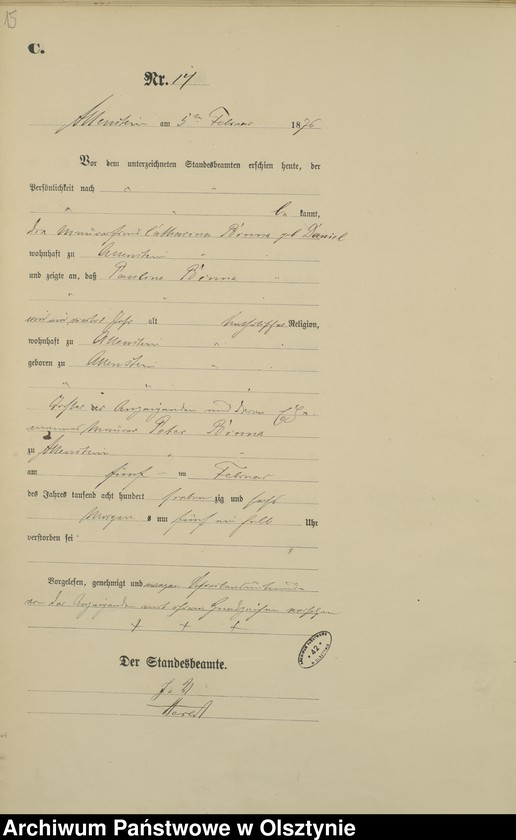 15
C.
Nr. 17
Allenstein am 5ten Februar 1876
Vor dem unterzeichneten Standesbeamten erschien heute, der
Persönlichkeit nach
be kannt,
die Maurerfrau Catharina Bönna geb Daniel
wohnhaft zu Allenstein
und zeigte an, daß Pauline Bönna
alt katholischer Religion,
wohnhaft zu Allenstein
geboren zu Allenstein
Tochter der Anzeigenden und deren Ehe-
mannes Maurer Peter Bönna
zu Allenstein
am fünf im Februar
des Jahres tausend acht hundert sieben zig und sechs
Morgen s um fünf ein halb Uhr
verstorben sei
Vorgelesen, genehmigt und wegen Schreibensunkunde
von der Anzeigenden mit ihrem Handzeichen versehen
+ + +
42
Der Standesbeamte.
Archiwum Państwowe w Olsztynie